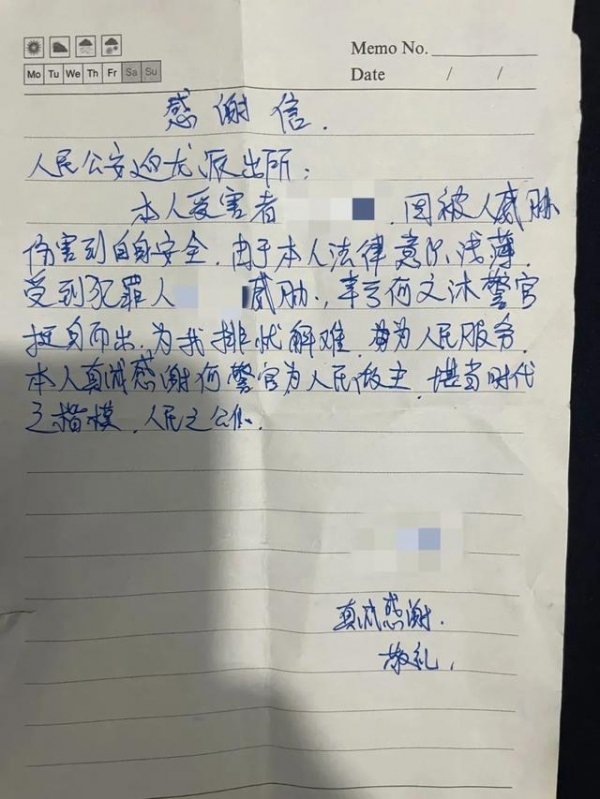 Memo No.
Date / /
Mo Tu We Th Fr Sa Su
感谢信.
人民公安迎龙派出所:
本人受害者 因被人威胁
伤害到自身安全.由于本人法律意识浅薄.
受到犯罪人 威胁.,幸亏何文沐警官
挺身而出.为我排忧解难.身为人民服务.
本人真诚感谢何警官为人民做主.堪当时代
之楷模.人民之公仆.
真诚感谢.
敬礼.